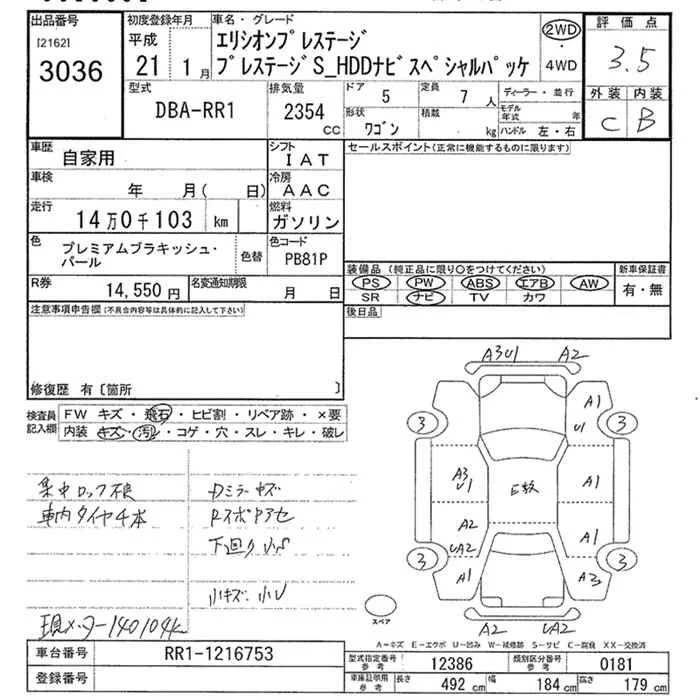 出品番号 初度登録年月 車名・グレード 評価点
[2162] 平成 エリシオンプレステージ 2WD
3036 21 1月 プレステージS_HDDナビスペシャルパッケ ・4WD 3.5
型式 排気量 ドア 5 定員 7人 ディーラー・並行 外装 内装
DBA-RR1 2354 cc 形状 ワゴン 積載 kg モデル年式 年 C B
ハンドル 左・右
車歴 自家用 シフト IAT セールスポイント(正常に機能するものに限ります)
車検 年 月( 日) 冷房 AAC
走行 14万0千103 km 燃料 ガソリン
色 プレミアムブラキッシュ・パール 色替 色コード PB81P
装備品 (純正品に限り○をつけてください) 新車保証書
PS PW ABS エアB AW 有・無
R券 14,550円 名変通知期限 月 日 SR ナビ TV カワ
注意事項申告欄(不具合内容等は具体的に記入して下さい) 後日品
修復歴 有〔箇所 〕
検査員記入欄 FW キズ・飛石・ヒビ割・リペア跡・×要
内装 キズ・汚れ・コゲ・穴・スレ・キレ・破レ
A3U1 A2
A1
3 U1 3
A3 U1 A1
A2 A1
UA2
3 A1 A3 3
A2 UA2
スペア
集中ロック不良 Dミラーキズ
車内タイヤ4本
下回り
小キズ
現メーター140104k
A-キズ E-エクボ U-凹み W-補修跡 S-サビ C-腐食 XX-交換済
車台番号 RR1-1216753 型式指定番号 参考 12386 類別区分番号 参考 0181
登録番号 車庫証明用 参考 長さ 492 cm 幅 184 cm 高さ 179 cm